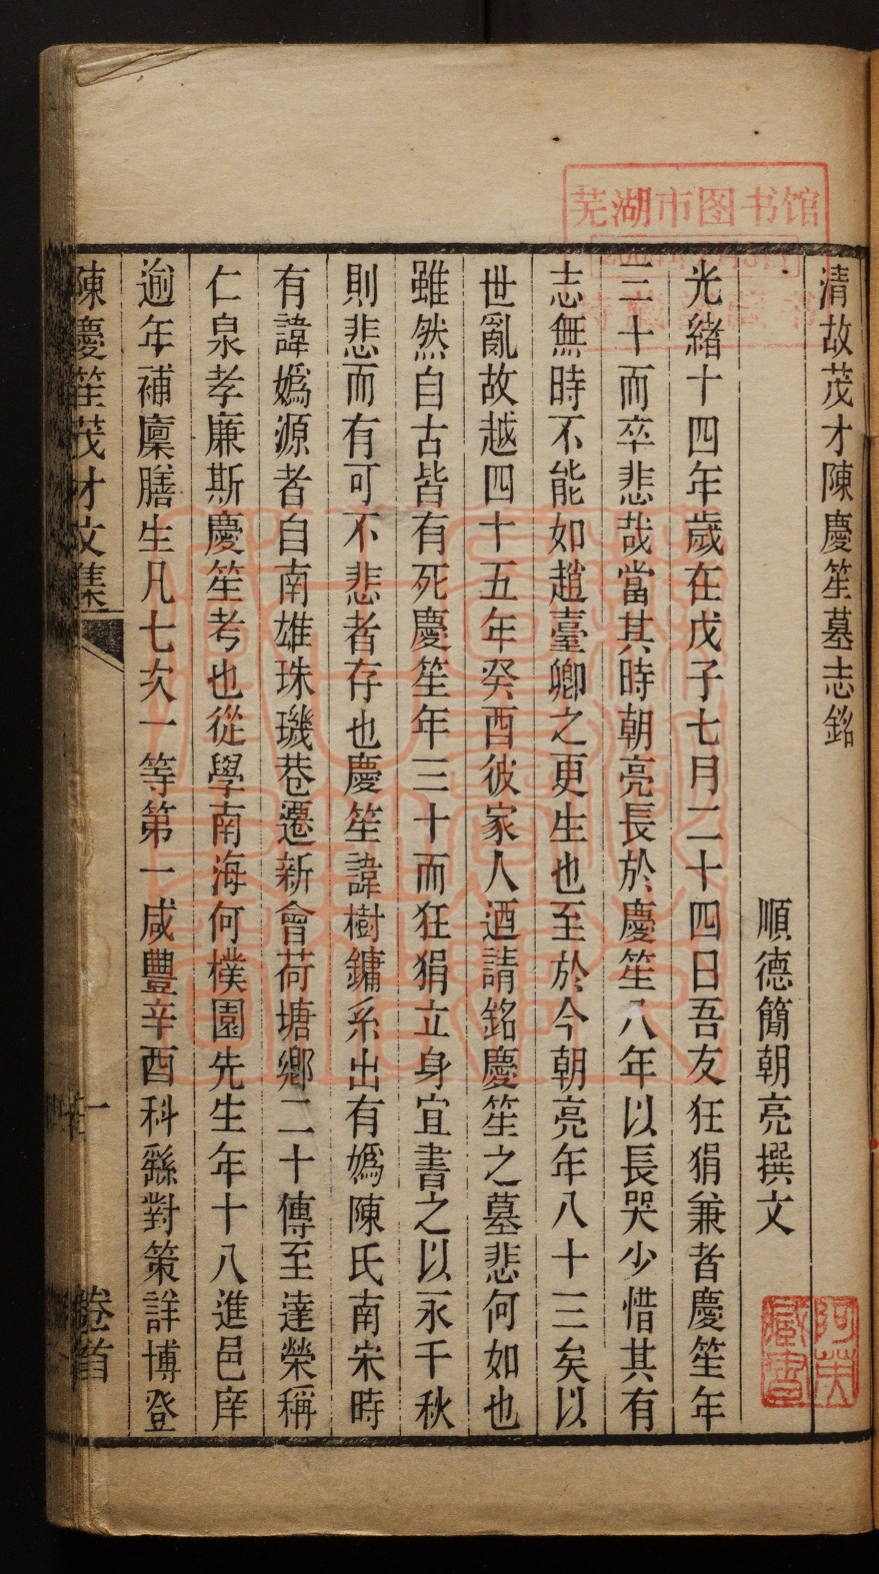 芜湖市图书馆
清故茂才陳慶笙墓志銘
順德簡朝亮撰文
光緒十四年歲在戊子七月二十四日吾友狂狷兼者慶笙年
三十而卒悲哉當其時朝亮長於慶笙八年以長哭少惜其有
志無時不能如趙臺卿之更生也至於今朝亮年八十三矣以
世亂故越四十五年癸酉彼家人迺請銘慶笙之墓悲何如也
雖然自古皆有死慶笙年三十而狂狷立身宜書之以永千秋
則悲而有可不悲者存也慶笙諱樹鏞系出有媯陳氏南宋時
有諱媯源者自南雄珠璣巷遷新會荷塘鄉二十傳至達榮稱
仁泉孝廉斯慶笙考也從學南海何樸園先生年十八進邑庠
逾年補廩膳生凡七次一等第一咸豐辛酉科繇對策詳博登
陳慶笙茂才文集
卷首
一